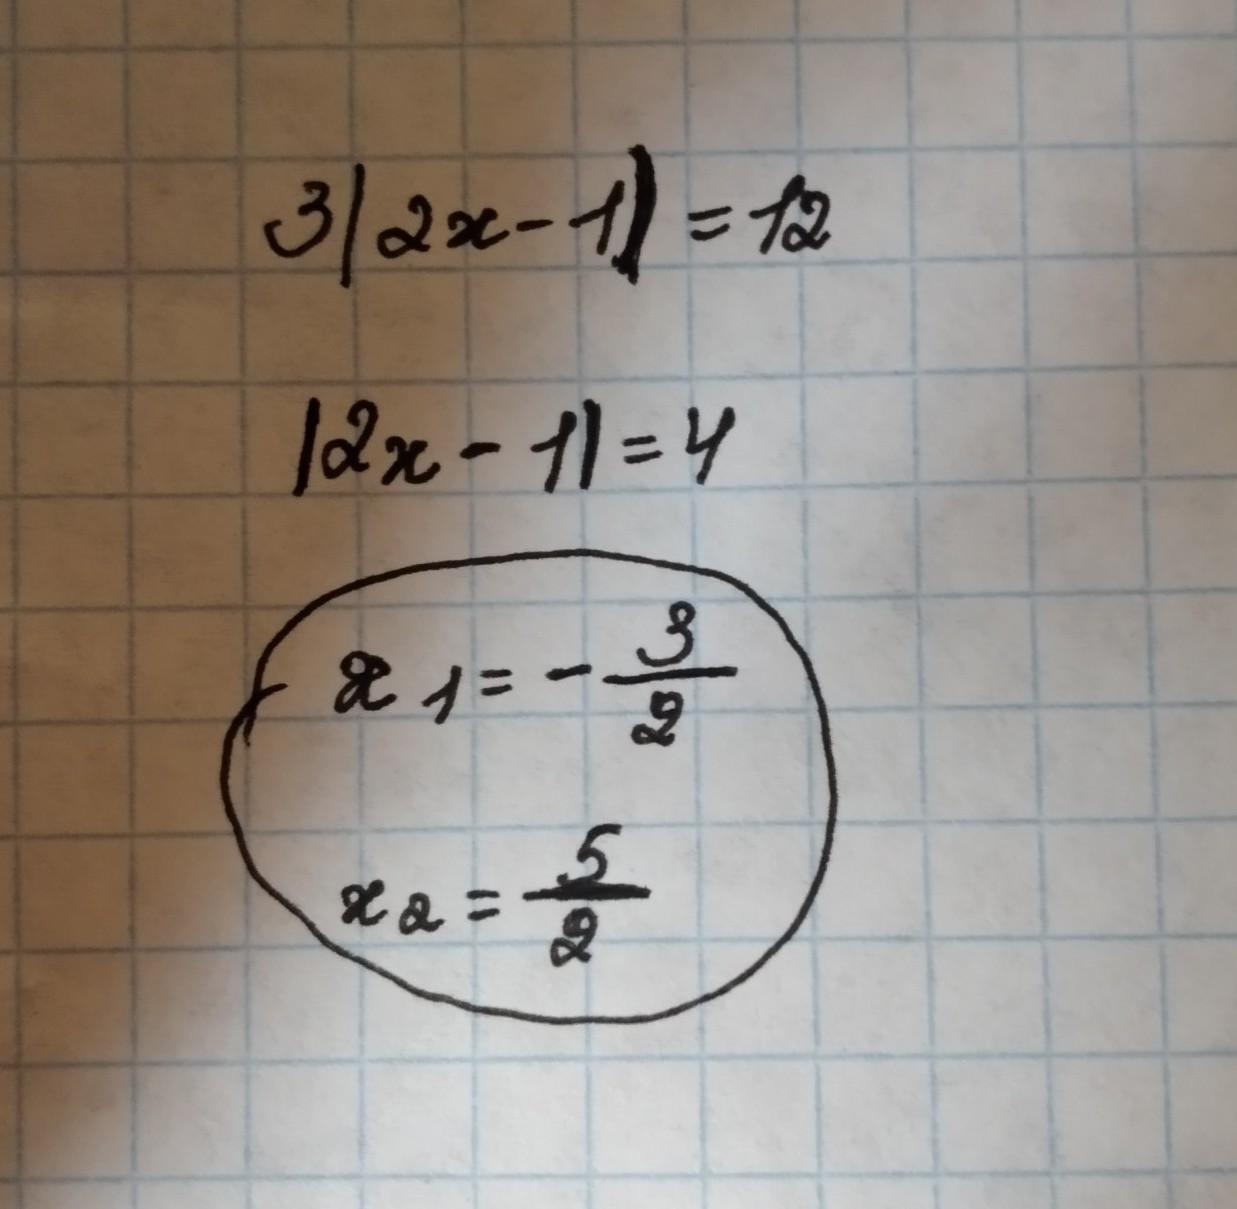 3|2x-1|=12
|2x-1|=4
x1=-3/2
x2=5/2